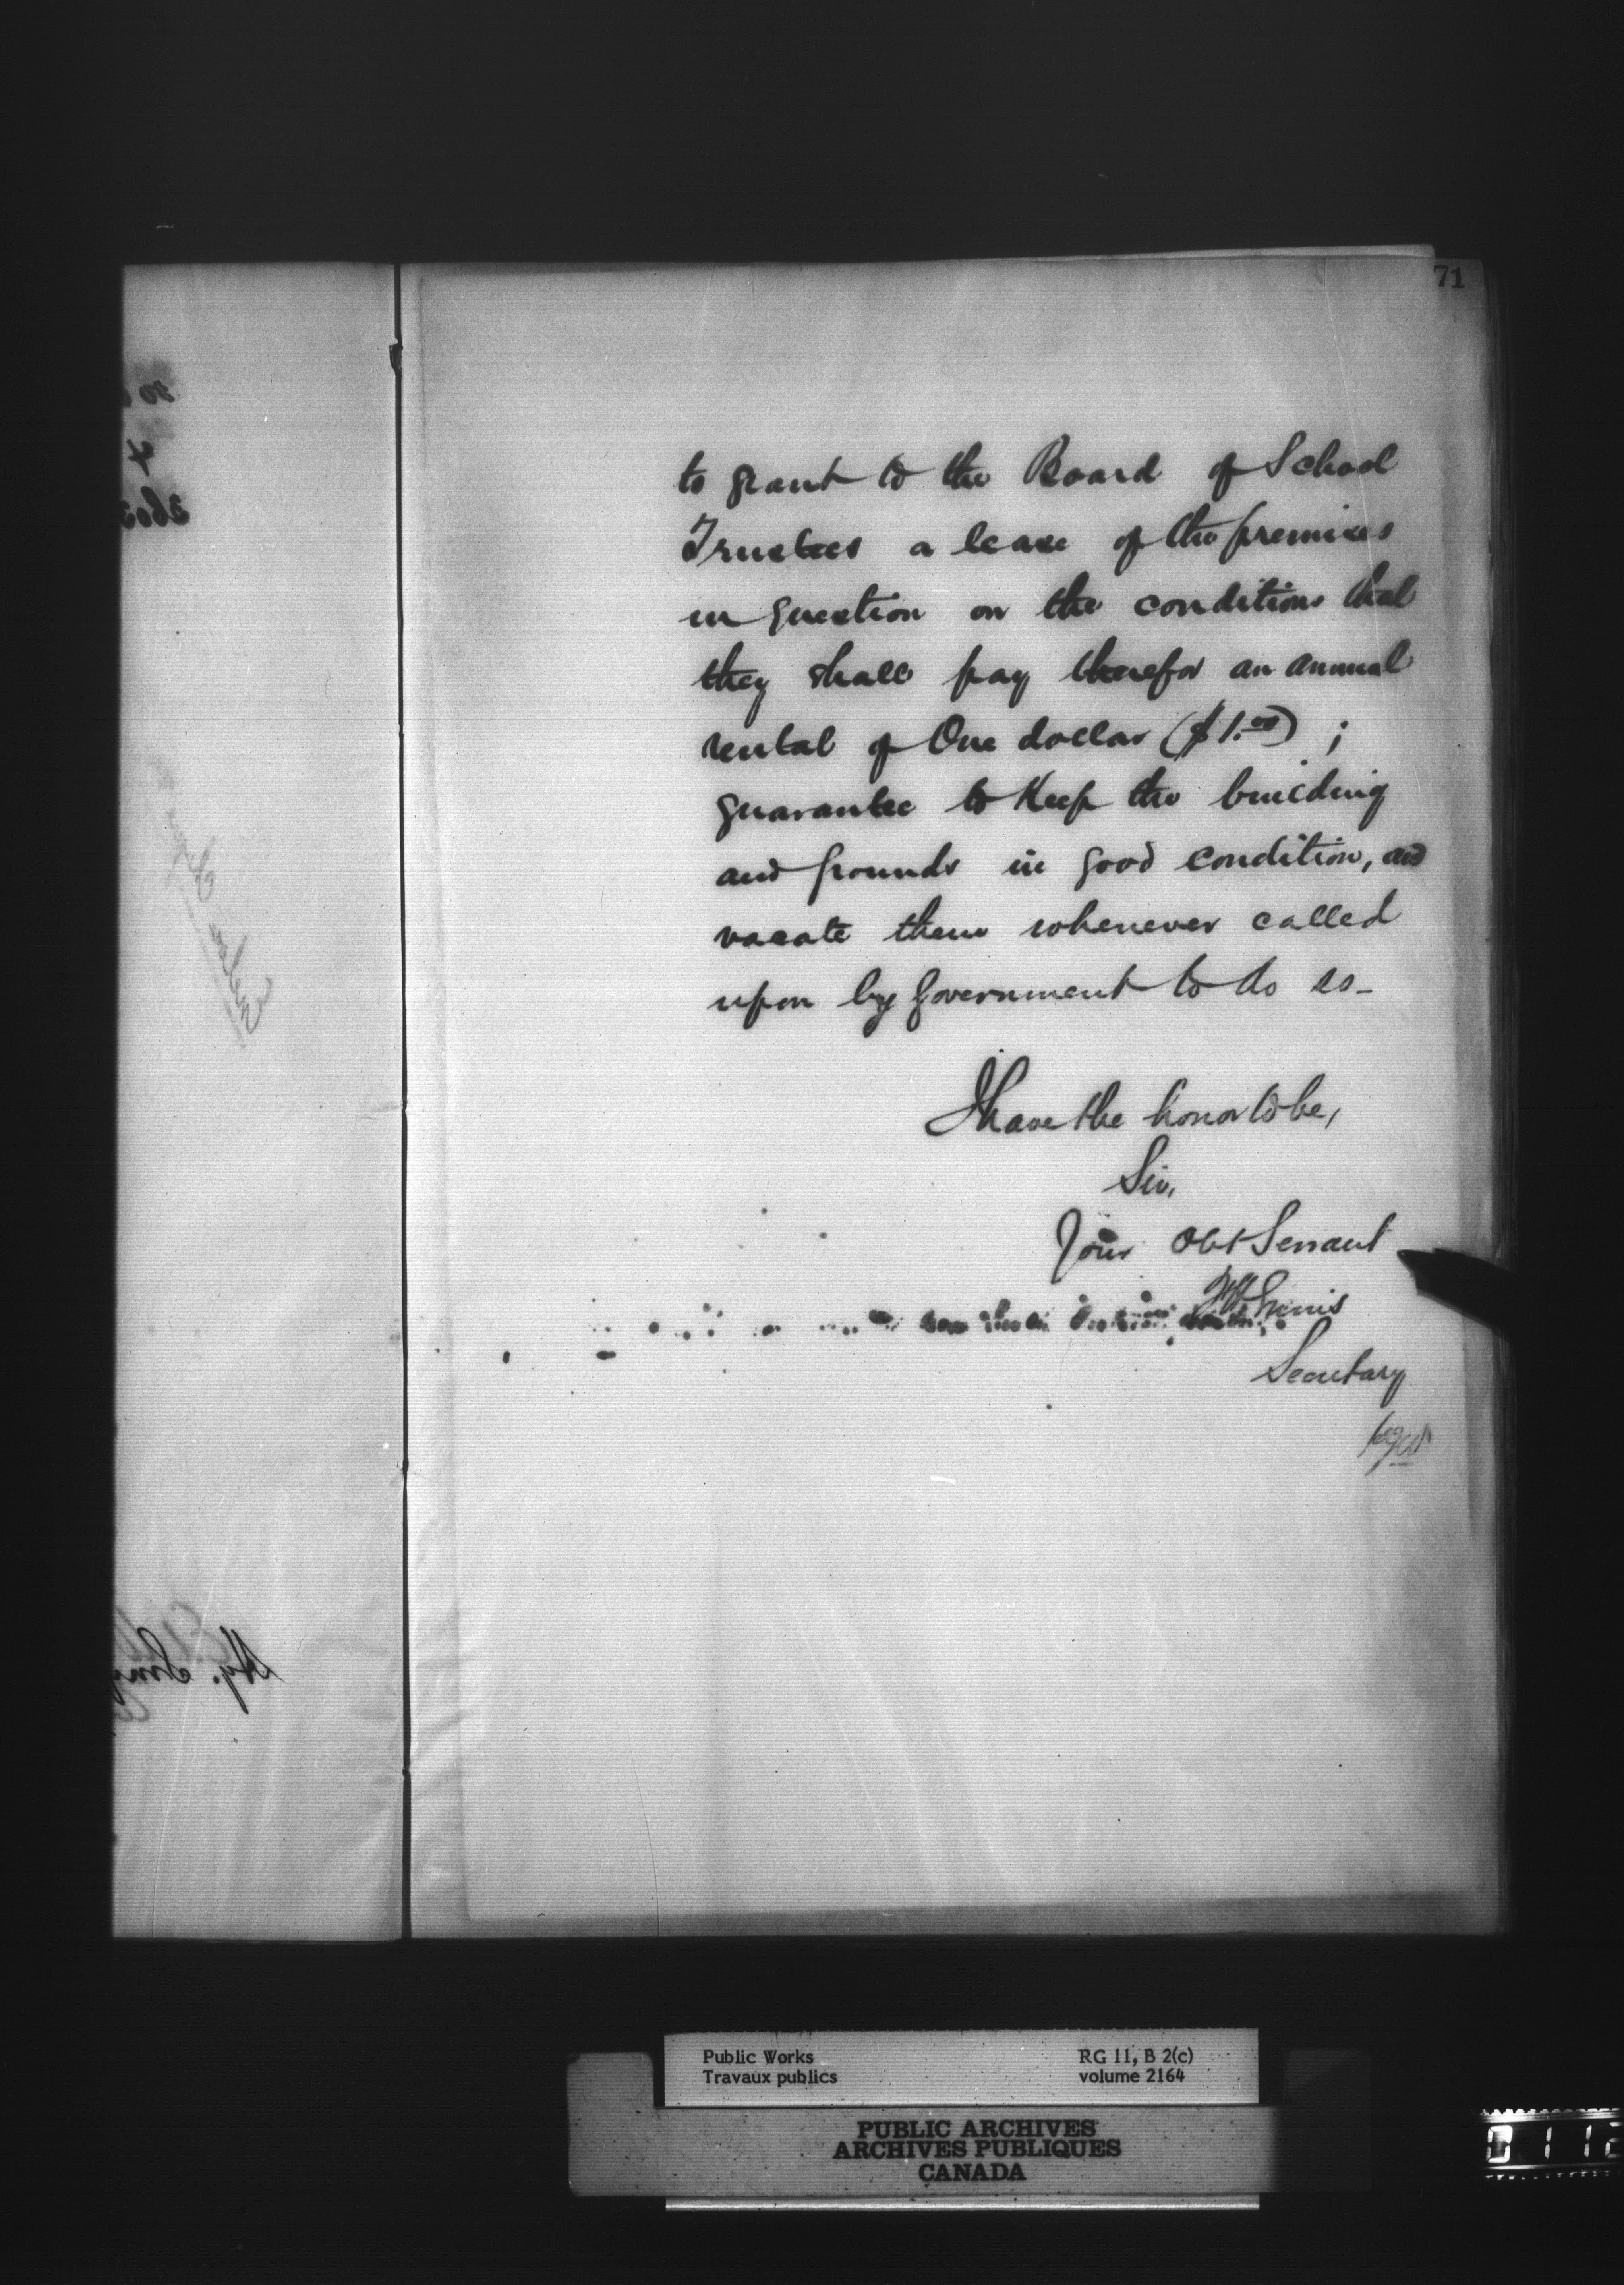 71
to grant to the Board of School
Trustees a lease of the premises
in question on the conditions that
they shall pay therefor an annual
rental of One dollar ($1.00) ;
guarantee to Keep the building
and grounds in good condition, and
vacate them whenever called
upon by Government to do so_
I have the honor to be,
Sir,
Your Obt Servant
Secretary
Public Works
Travaux publics
RG 11, B 2(c)
volume 2164
PUBLIC ARCHIVES
ARCHIVES PUBLIQUES
CANADA